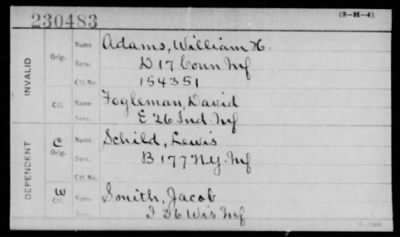 230483
(3-H-4)
INVALID
Orig.
Name
Adams, William H.
Serv.
D 17 Conn Inf
Ctf. No.
154351
Ctf.
Name
Fogleman, David
Serv.
E 26 Ind Inf
DEPENDENT
C
Orig.
Name
Schild, Lewis
Serv.
B 177 N.Y. Inf
Ctf. No.
W
Ctf.
Name
Smith, Jacob
Serv.
I 26 Wis Inf